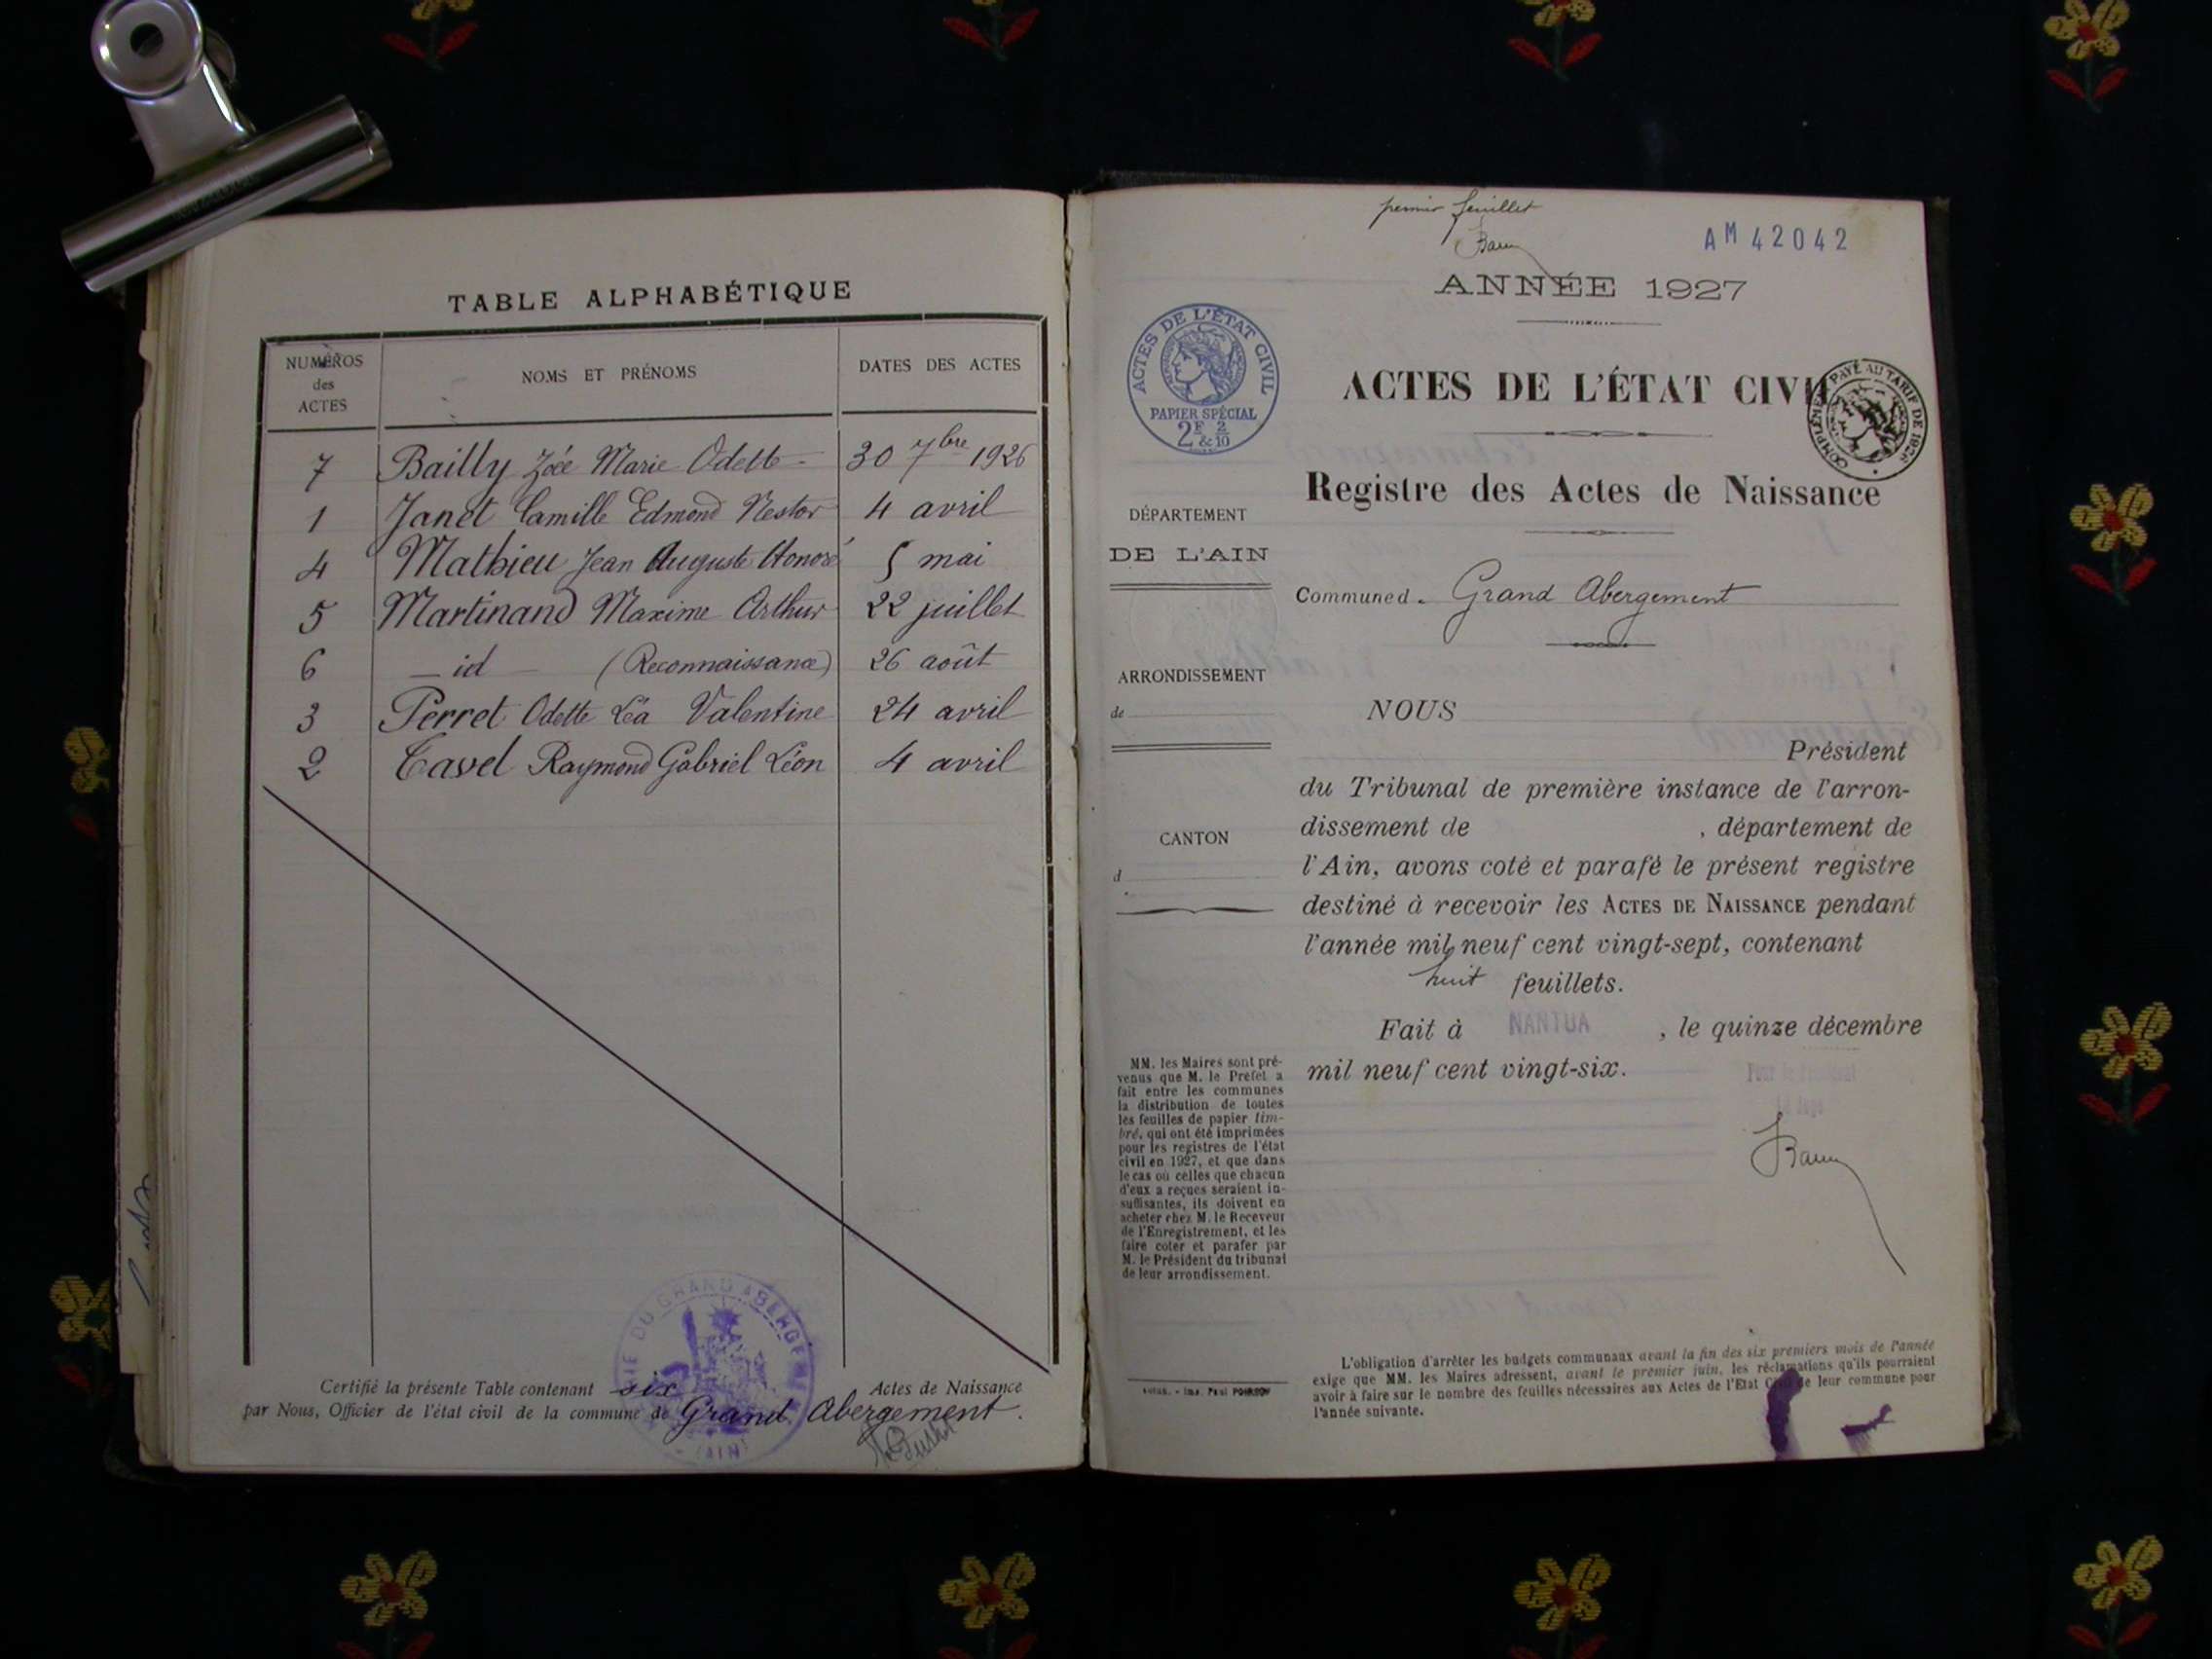 TABLE ALPHABÉTIQUE
NUMÉROS
des
ACTES
NOMS ET PRÉNOMS
DATES DES ACTES
7 Bailly Zoé Marie Odette 30 7bre 1926
1 Janet Camille Edmond Nestor 4 avril
4 Mathieu Jean Auguste Honoré 5 mai
5 Martinand Maxime Arthur 22 juillet
6 — id — (Reconnaissance) 26 août
3 Perret Odette Léa Valentine 24 avril
2 Tavel Raymond Gabriel Léon 4 avril
Certifié la présente Table contenant six Actes de Naissance
par Nous, Officier de l'état civil de la commune de Grand Abergement.
DU GRAND ABERGEME
(AIN)
premier feuillet
AM 42042
ANNÉE 1927
ACTES DE L'ÉTAT CIVIL
PAPIER SPÉCIAL
2F 2
& 10
COMPLÉMENT PAYÉ AU TARIF DE 1926
ACTES DE L'ÉTAT CIVIL
Registre des Actes de Naissance
DÉPARTEMENT
DE L'AIN
Commune d. Grand Abergement
ARRONDISSEMENT
de
CANTON
d
NOUS
Président
du Tribunal de première instance de l'arron-
dissement de , département de
l'Ain, avons coté et parafé le présent registre
destiné à recevoir les ACTES DE NAISSANCE pendant
l'année mil neuf cent vingt-sept, contenant
huit feuillets.
Fait à NANTUA , le quinze décembre
mil neuf cent vingt-six.
MM. les Maires sont pré-
venus que M. le Préfet a
fait entre les communes
la distribution de toutes
les feuilles de papier tim-
bré, qui ont été imprimées
pour les registres de l'état
civil en 1927, et que dans
le cas où celles que chacun
d'eux a reçues seraient in-
suffisantes, ils doivent en
acheter chez M. le Receveur
de l'Enregistrement, et les
faire coter et parafer par
M. le Président du tribunal
de leur arrondissement.
L'obligation d'arrêter les budgets communaux avant la fin des six premiers mois de l'année
exige que MM. les Maires adressent, avant le premier juin, les réclamations qu'ils pourraient
avoir à faire sur le nombre des feuilles nécessaires aux Actes de l'Etat de leur commune pour
l'année suivante.